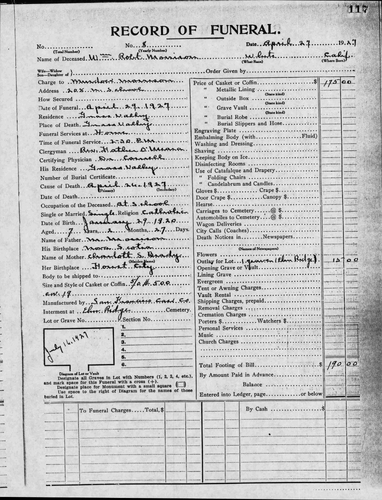 117
RECORD OF FUNERAL.
No. No. 8 Date April 27 1927
(Total Number) (Yearly Number)
Name of Deceased Wm Robt Morrison White Calif.
(What Race) (Where Born)
Wife—Widow
Son—Daughter of Order Given by
Charge to Murdock Morrison
Address 205 M. School
How Secured
Date of Funeral April 29, 1927
Residence Grass Valley
Place of Death Grass Valley
Funeral Services at Home
Time of Funeral Service 2:30 P.M.
Clergyman Rev. Father O'Meara
Certifying Physician Dr.
His Residence Grass Valley
Number of Burial Certificate
Cause of Death (Contributory)
Date of Death April 26, 1927 (Incidents)
Occupation of the Deceased At School
Single or Married Single Religion Catholic
Date of Birth January 29, 1920
Aged 7 Years 2 Months 27 Days
Name of Father M. Morrison
His Birthplace Nova Scotia
Name of Mother Charlott S. Brady
(Maiden Name)
Her Birthplace Forest City
Body to be shipped to
Size and Style of Casket or Coffin 500
Manufactured by San Francisco Cas. Co
Interment at Elm Ridge Cemetery.
Lot or Grave No. Section No.
July 16, 1927
1.
2.
3.
4.
5.
6.
Diagram of Lot or Vault
Designate all Graves in Lot with Numbers (1, 2, 3, 4, etc.),
and mark space for this Funeral with a cross (+).
Designate place for Monument with a small square
Use space to the right of Diagram for the names of those
buried in Lot.
Price of Casket or Coffin $ 175 00
" Metallic Lining
" Outside Box
" Burial Robe
" Burial Slippers and Hose
Engraving Plate
Embalming Body (with Fluid)
Washing and Dressing
Shaving
Keeping Body on Ice
Disinfecting Rooms
Use of Catafalque and Drapery
" Folding Chairs
" Candelabrum and Candles
Gloves $ Crape $
Door Crape $ Canopy $
Hearse
Carriages to Cemetery @ $
Automobiles to Cemetery @ $
Wagon Deliveries
City Calls (Coaches)
Death Notices in Newspapers
(Names of Newspapers)
Flowers
Outlay for Lot 1 grave (Elm Ridge) 15 00
Opening Grave or Vault
Lining Grave
Evergreens
Tent or Awning Charges
Vault Rental
Shipping Charges, prepaid
Removal Charges
Cremation Charges
Porters $ Watchers $
Personal Services
Music
Church Charges
Total Footing of Bill $ 190 00
By Amount Paid in Advance
Balance
Entered into Ledger, page or below.
To Funeral Charges Total, $
By Cash $